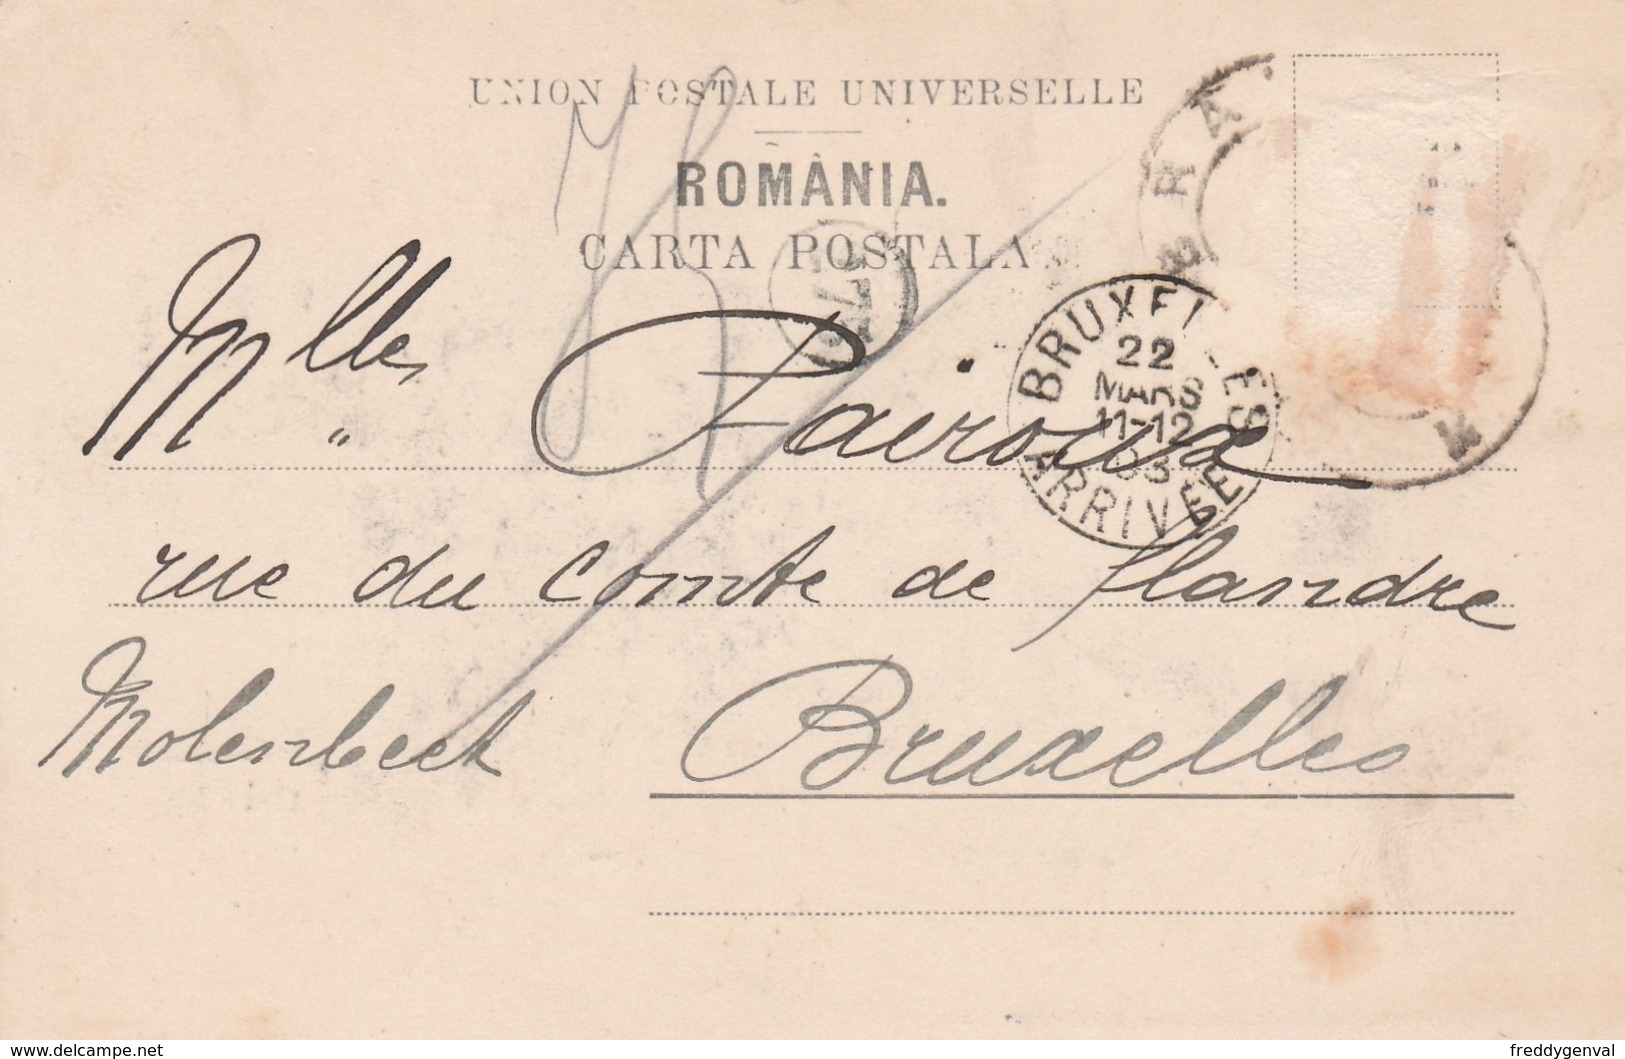 UNION POSTALE UNIVERSELLE
ROMÂNIA.
CARTA POSTALA
BRUXELLES
22
MARS
11-12
03
ARRIVÉE
Mlle
rue du Comte de flandre
Molenbeek Bruxelles
www.delcampe.net
freddygenval